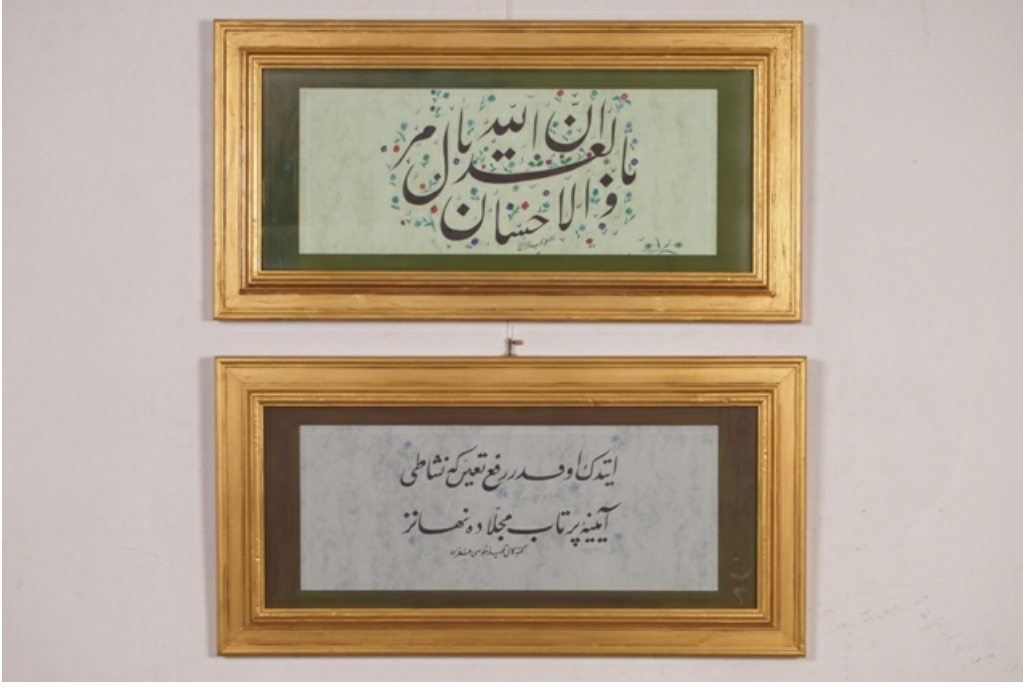 ان الله يأمر بالعدل والاحسان
ایتدك او قدر رفع تعین که نشاطی
آیینهٔ پر تاب مجلّاده نهانز